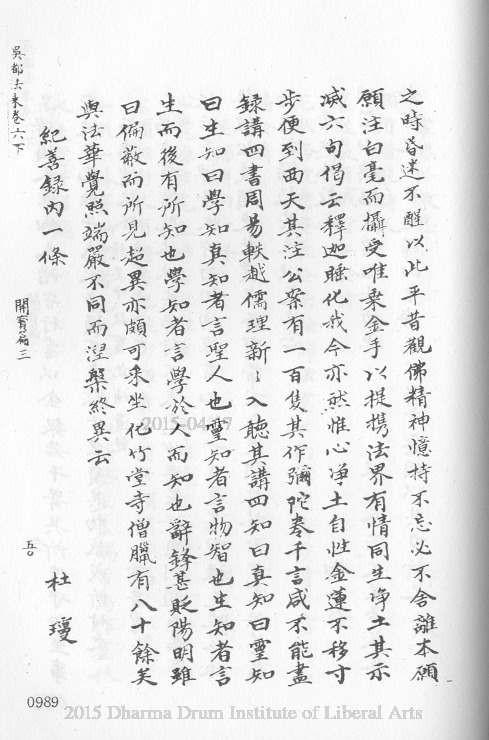 之時昏迷不醒以此平昔觀佛精神憶持不忘必不舍離本願
願注白毫而攝受唯垂金手以提携法界有情同生淨土其示
滅六句偈云釋迦睡化我今亦然惟心淨土自性金蓮不移寸
步便到西天其注公案有一百隻其作彌陀卷千言咸不能盡
録講四書周易軼越儒理新〻入聽其講四知曰真知曰靈知
曰生知曰學知真知者言聖人也靈知者言物智也生知者言
生而後有所知也學知者言學於人而知也辭鋒甚貶陽明雖
曰偏蔽而所見超異亦頗可采坐化竹堂寺僧臘有八十餘矣
與法華覺照端嚴不同而湼槃終異云
紀善録內一條
杜瓊
吳都法乘卷六下
開寶篇三
五〇
0989
2015-04-07
2015 Dharma Drum Institute of Liberal Arts